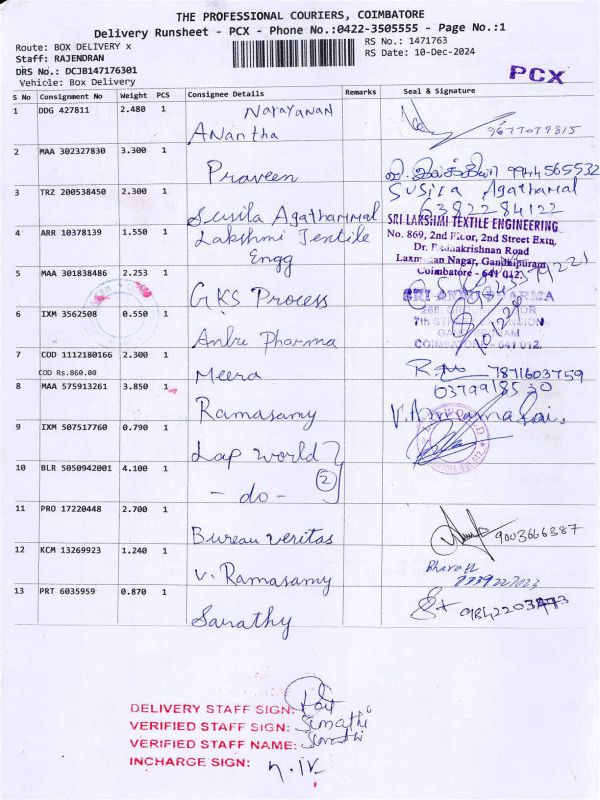 THE PROFESSIONAL COURIERS, COIMBATORE
Delivery Runsheet - PCX - Phone No.:0422-3505555 - Page No.:1
Route: BOX DELIVERY x
RS No.: 1471763
Staff: RAJENDRAN
RS Date: 10-Dec-2024
DRS No.: DCJB147176301
Vehicle: Box Delivery
PCX
S No Consignment No Weight PCS Consignee Details Remarks Seal & Signature
1 DDG 427811 2.480 1 Narayanan
Anantha
9677079815
2 MAA 302327830 3.300 1
Praveen
9944565532
3 TRZ 200538450 2.300 1
Susila Agathammal
Susila Agathamal
6382284122
4 ARR 10378139 1.550 1
Lakshmi Textile
Engg
SRI LAKSHMI TEXTILE ENGINEERING
No. 869, 2nd Floor, 2nd Street Extn,
Dr. Radhakrishnan Road
Laxmanan Nagar, Gandhipuram
Coimbatore - 641 012.
5 MAA 301838486 2.253 1
GKS Process
6 IXM 3562508 0.550 1
Anbu Pharma
SRI ANBU PHARMA
COIMBATORE - 641 012.
7 COD 1112180166 2.300 1
COD Rs.860.00
Meera
7871603759
8 MAA 575913261 3.850 1
Ramasamy
9 IXM 507517760 0.790 1
Lap world
10 BLR 5050942001 4.100 1
- do -
2
11 PRO 17220448 2.700 1
Bureau veritas
9003666387
12 KCM 13269923 1.240 1
V. Ramasamy
13 PRT 6035959 0.870 1
Sarathy
DELIVERY STAFF SIGN:
VERIFIED STAFF SIGN: Sumathi
VERIFIED STAFF NAME: Sumathi
INCHARGE SIGN: